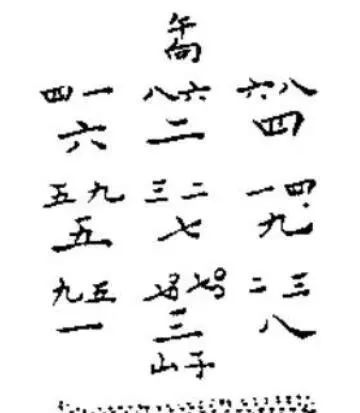 午
向
四一 八六 六八
六 二 四
五九 三二 一四
五 七 九
九五 七七 二三
一 三 八
山子